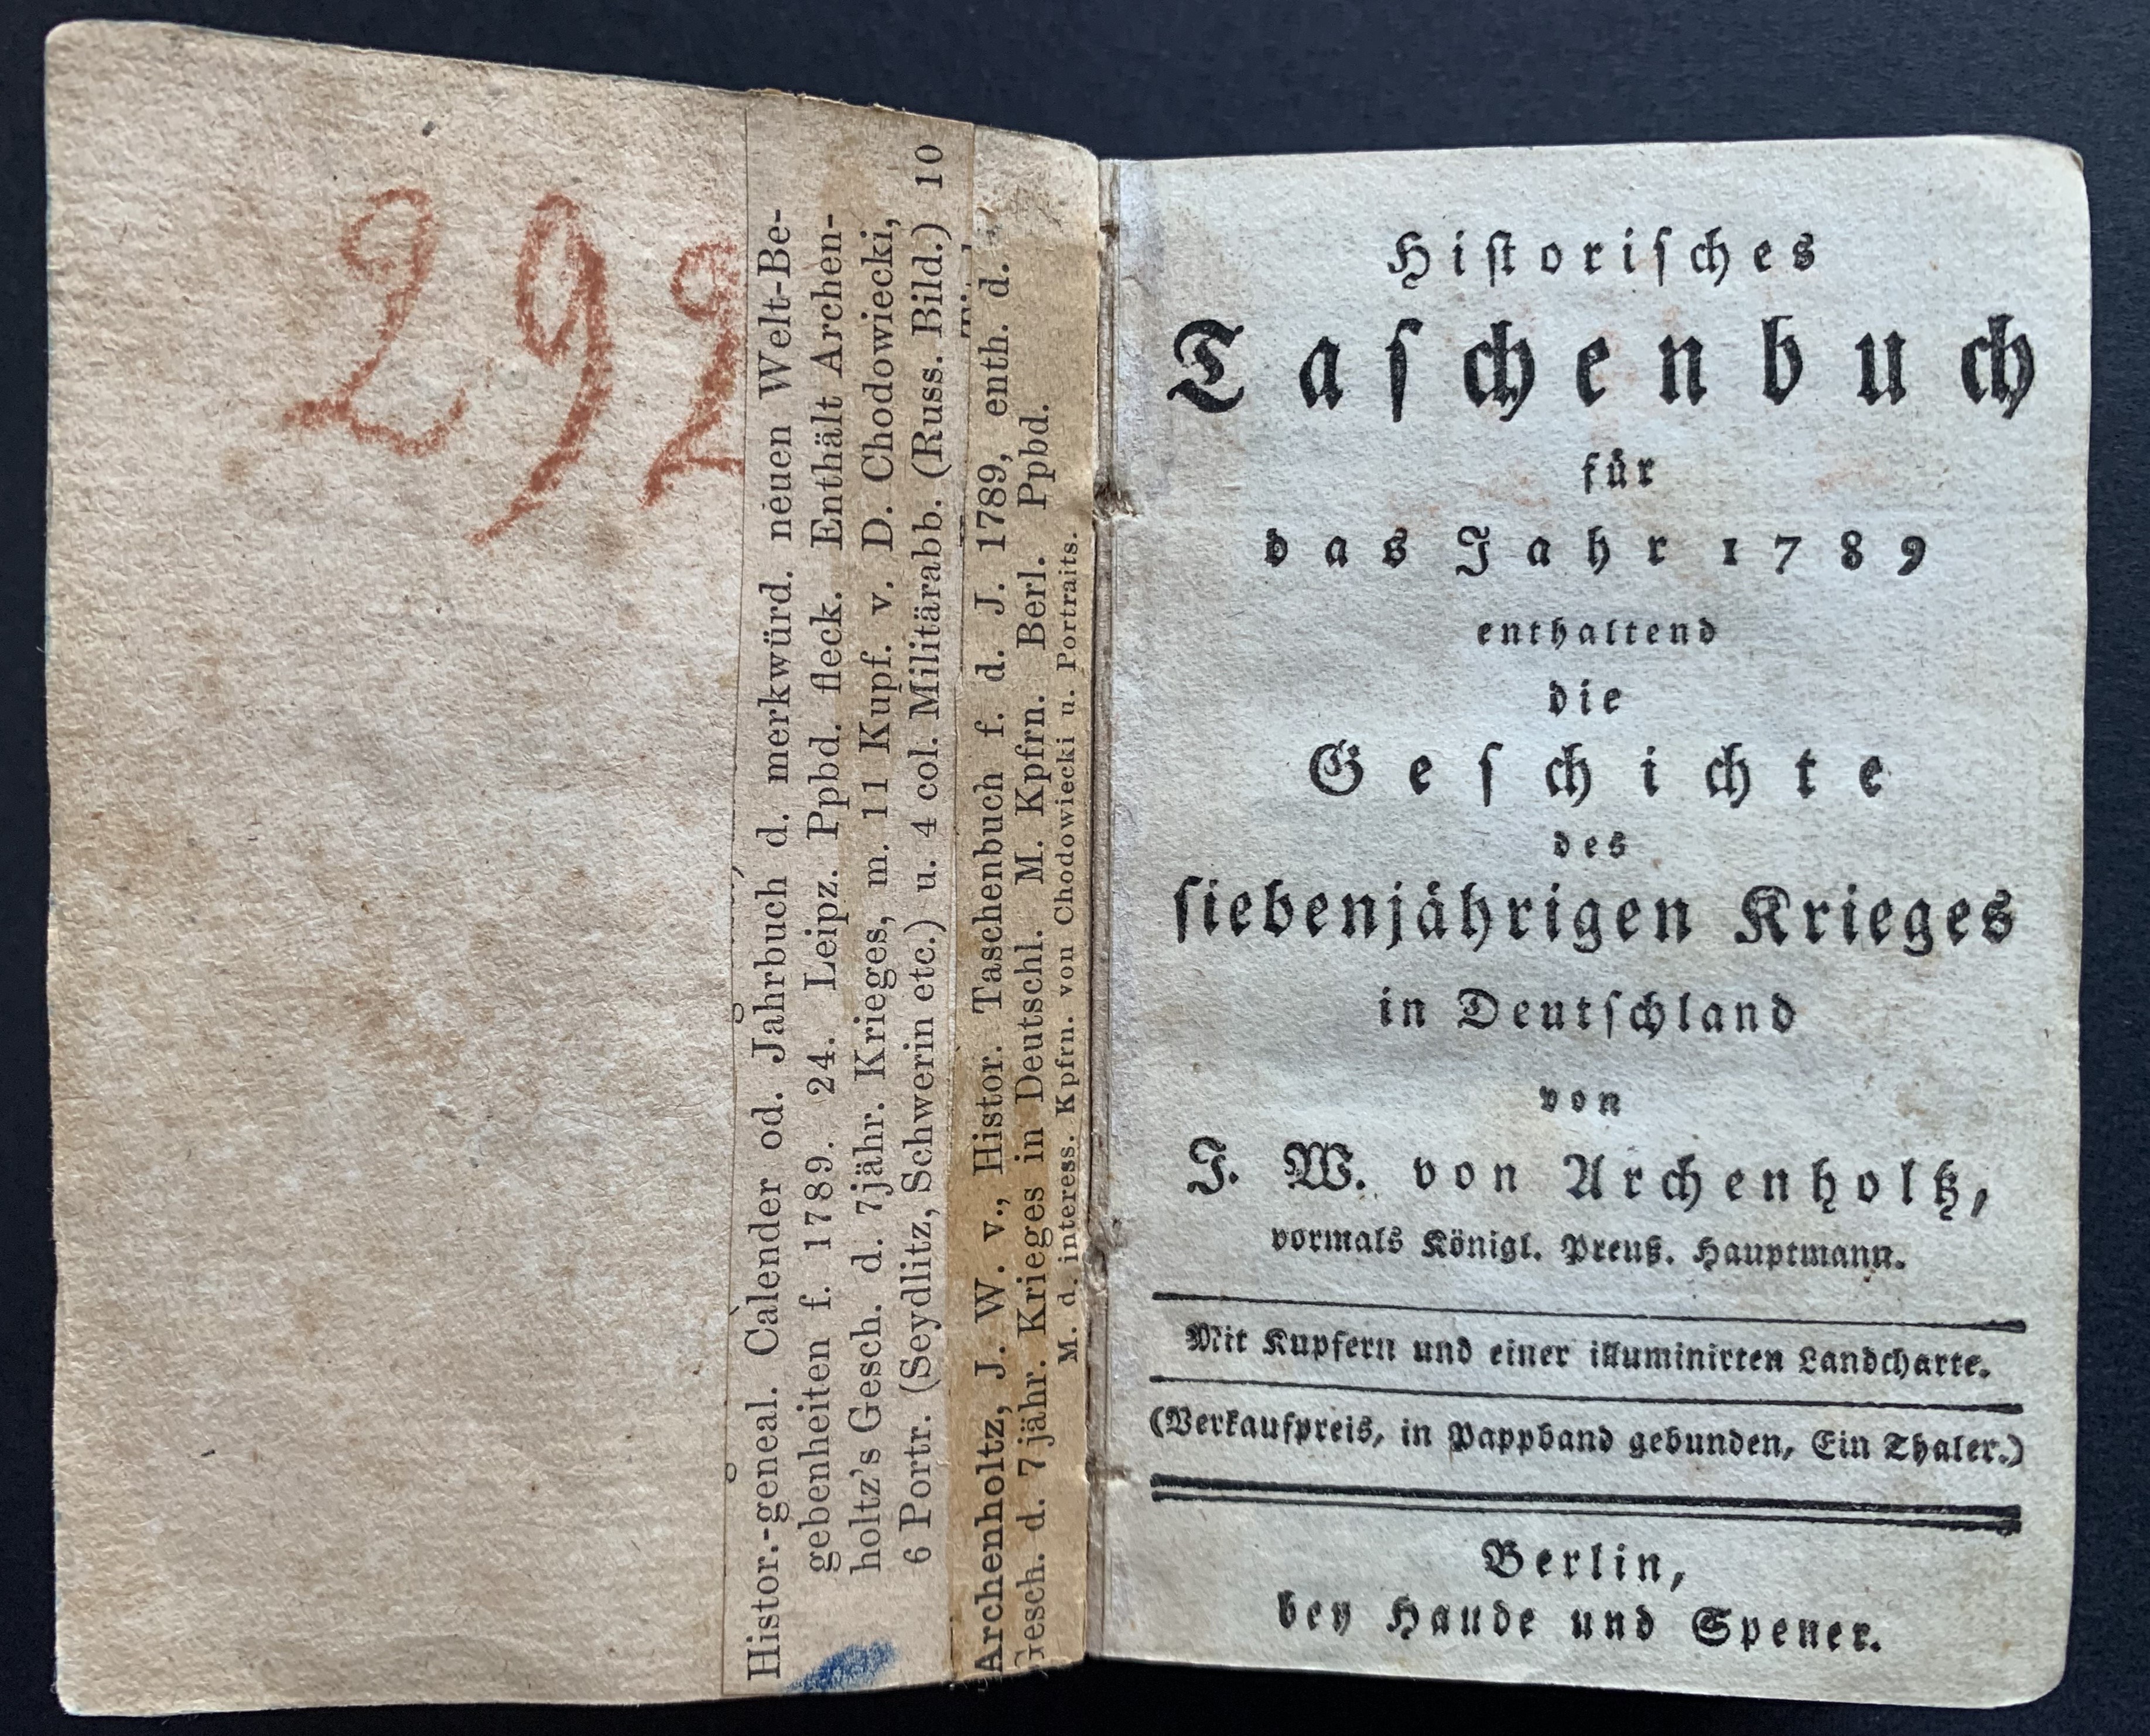 292
Histor.-geneal. Calender od. Jahrbuch d. merkwürd. neuen Welt-Be-
gebenheiten f. 1789. 24. Leipz. Ppbd. fleck. Enthält Archen-
holtz's Gesch. d. 7jähr. Krieges, m. 11 Kupf. v. D. Chodowiecki,
6 Portr. (Seydlitz, Schwerin etc.) u. 4 col. Militärabb. (Russ. Bild.) 10
Archenholtz, J. W. v., Histor. Taschenbuch f. d. J. 1789, enth. d.
Gesch. d. 7jähr. Krieges in Deutschl. M. Kpfrn. Berl. Ppbd.
M. d. interess. Kpfrn. von Chodowiecki u. Portraits.
Hiſtoriſches
Taſchenbuch
für
das Jahr 1789
enthaltend
die
Geſchichte
des
ſiebenjährigen Krieges
in Deutſchland
von
J. W. von Archenholtz,
vormals Königl. Preuß. Hauptmann.
Mit Kupfern und einer illuminirten Landcharte.
(Verkaufpreis, in Pappband gebunden, Ein Thaler.)
Berlin,
bey Haude und Spener.